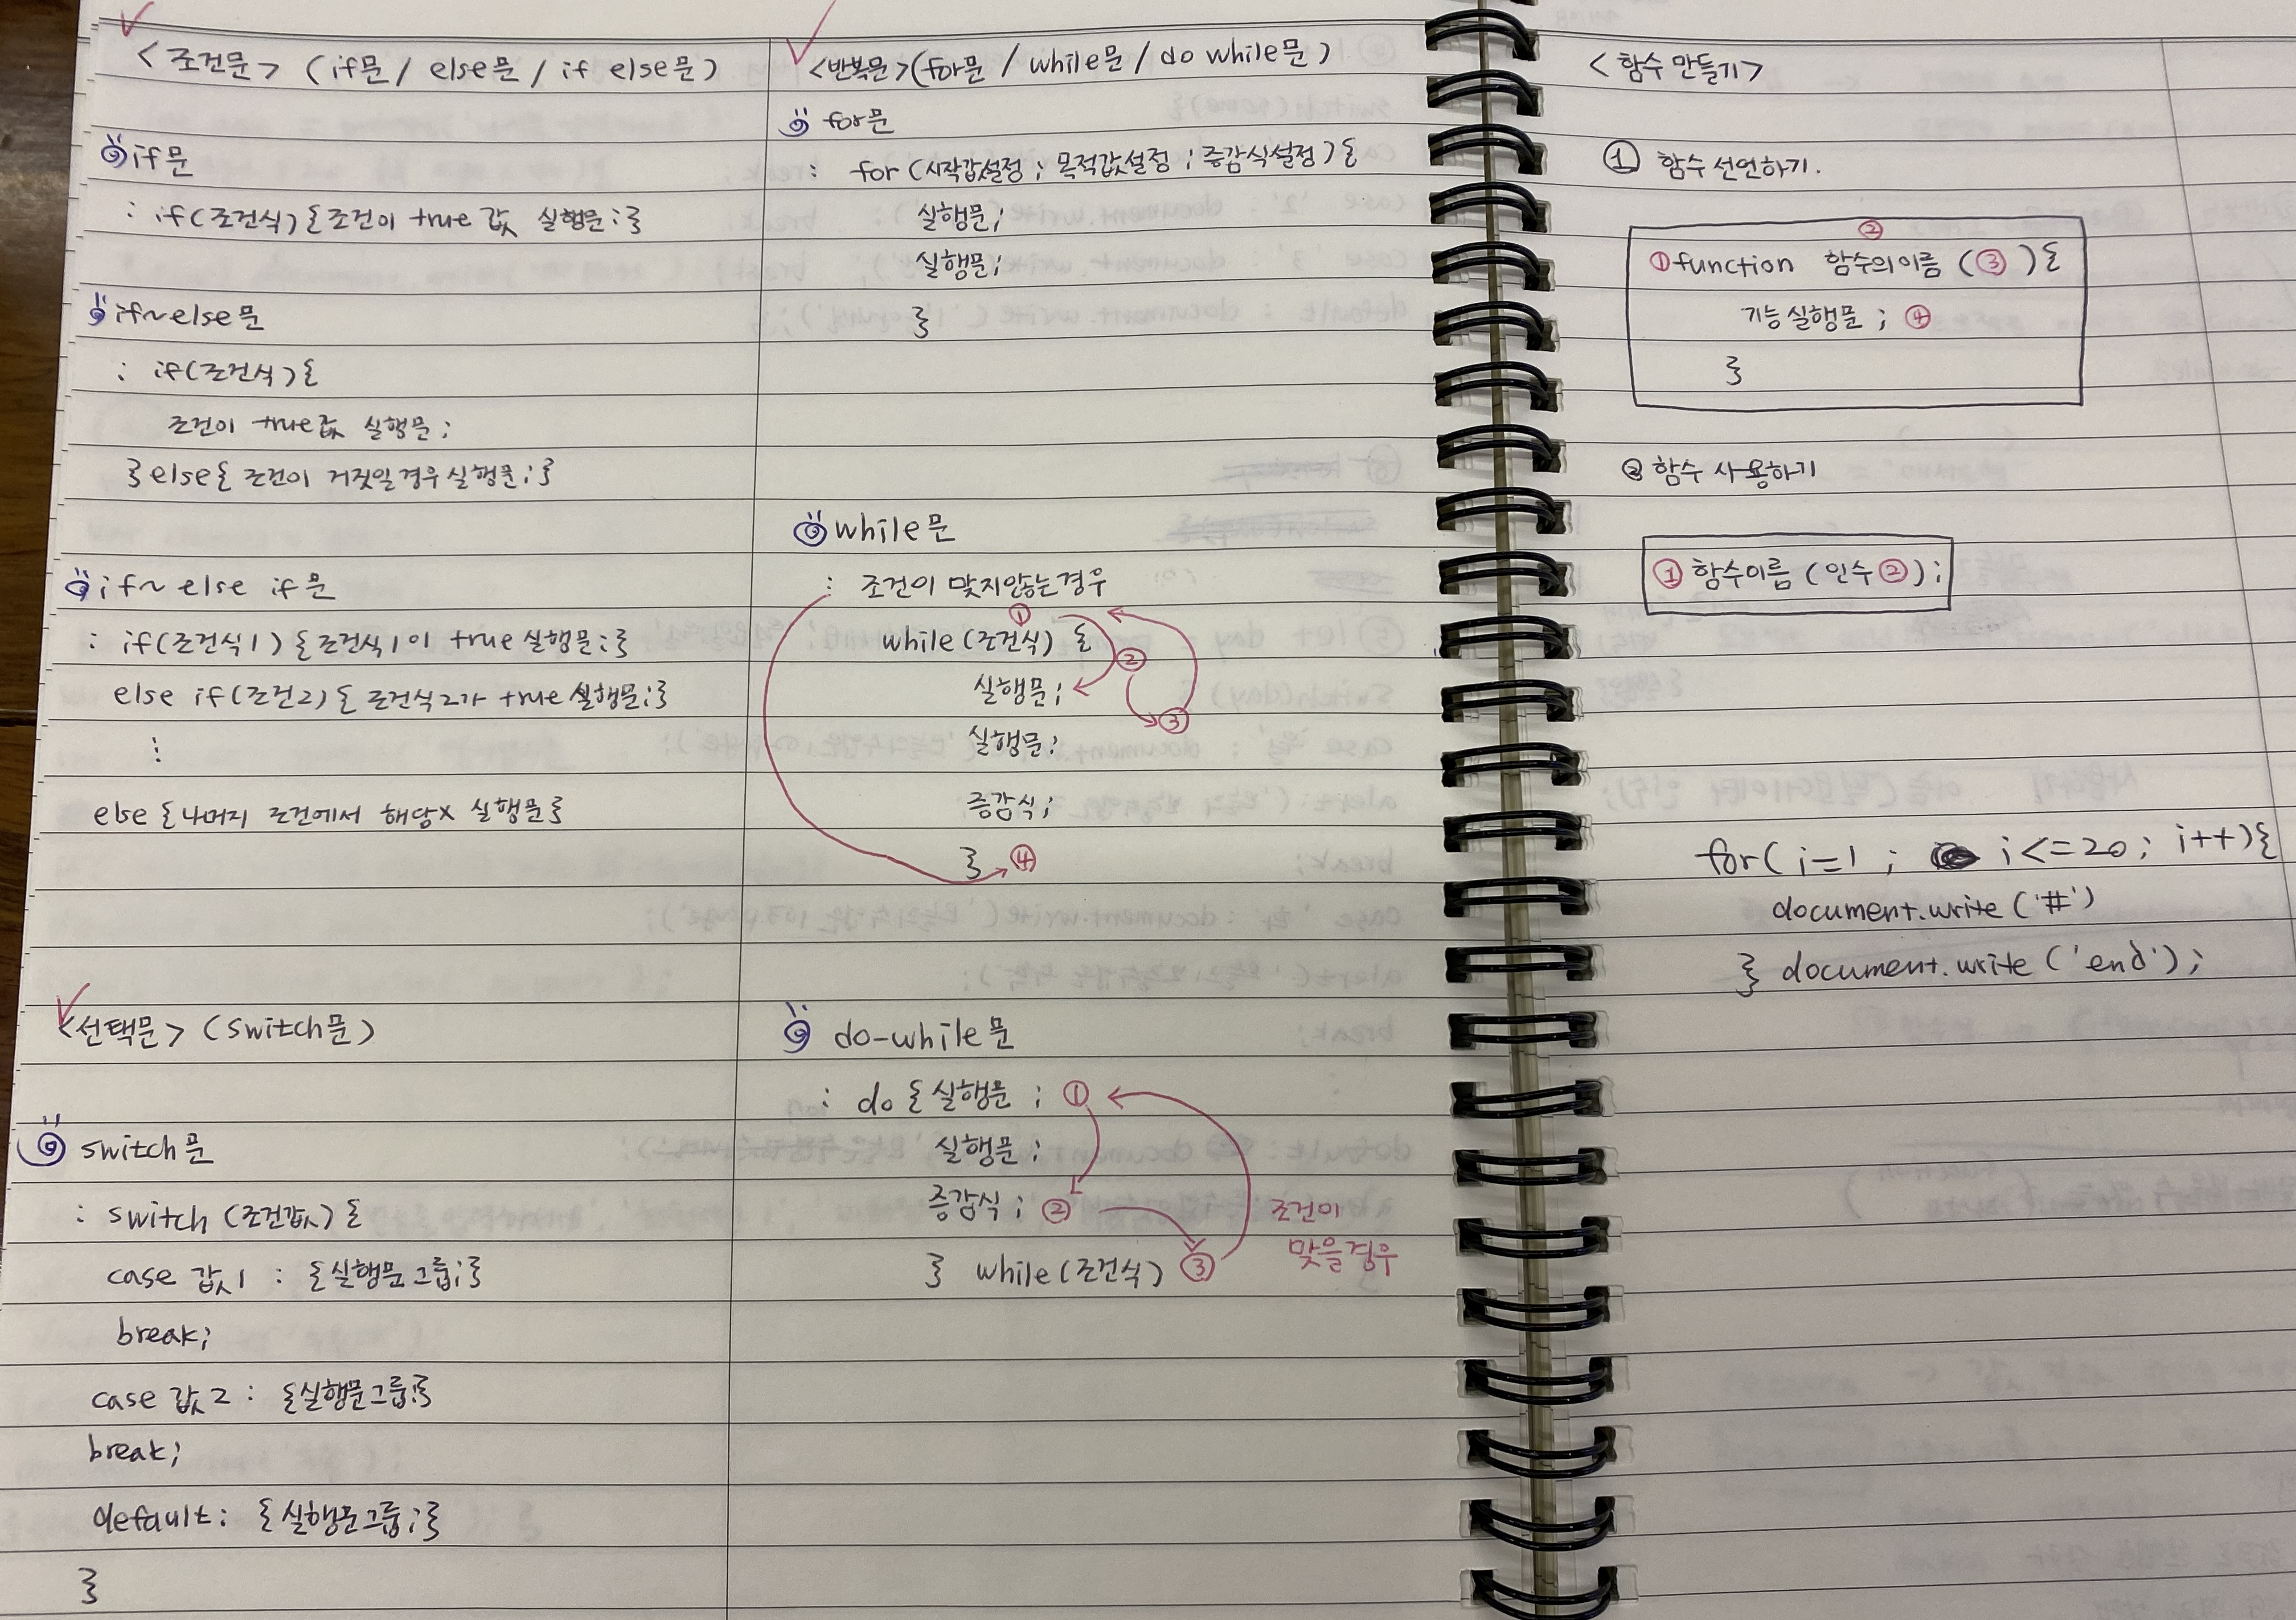 <조건문> (if문 / else문 / if else문)
if문
: if(조건식){조건이 true 값 실행문;}
if~else문
: if(조건식){
조건이 true값 실행문;
}else{조건이 거짓일경우실행문;}
if~else if문
: if(조건식1){조건식1이 true 실행문;}
else if(조건2){조건식2가 true실행문;}
:
else{나머지 조건에서 해당x 실행문}
<선택문> (switch문)
switch문
: switch (조건값){
case 값1 : {실행문그룹;}
break;
case 값2 : {실행문그룹;}
break;
default: {실행문그룹;}
}
<반복문>(for문 / while문 / do while문)
for문
: for (시작값설정; 목적값설정; 증감식설정){
실행문;
실행문;
}
while문
: 조건이 맞지않는경우
①
while(조건식) {
②
실행문;
③
실행문;
증감식;
} ④
do-while문
: do {실행문; ①
실행문;
증감식; ②
조건이
맞을경우
} while(조건식) ③
<함수 만들기>
① 함수 선언하기.
②
①function 함수의이름 (③){
기능실행문; ④
}
② 함수 사용하기
①함수이름 (인수②);
for( i=1 ; i<=20; i++){
document.write('#')
} document.write('end');